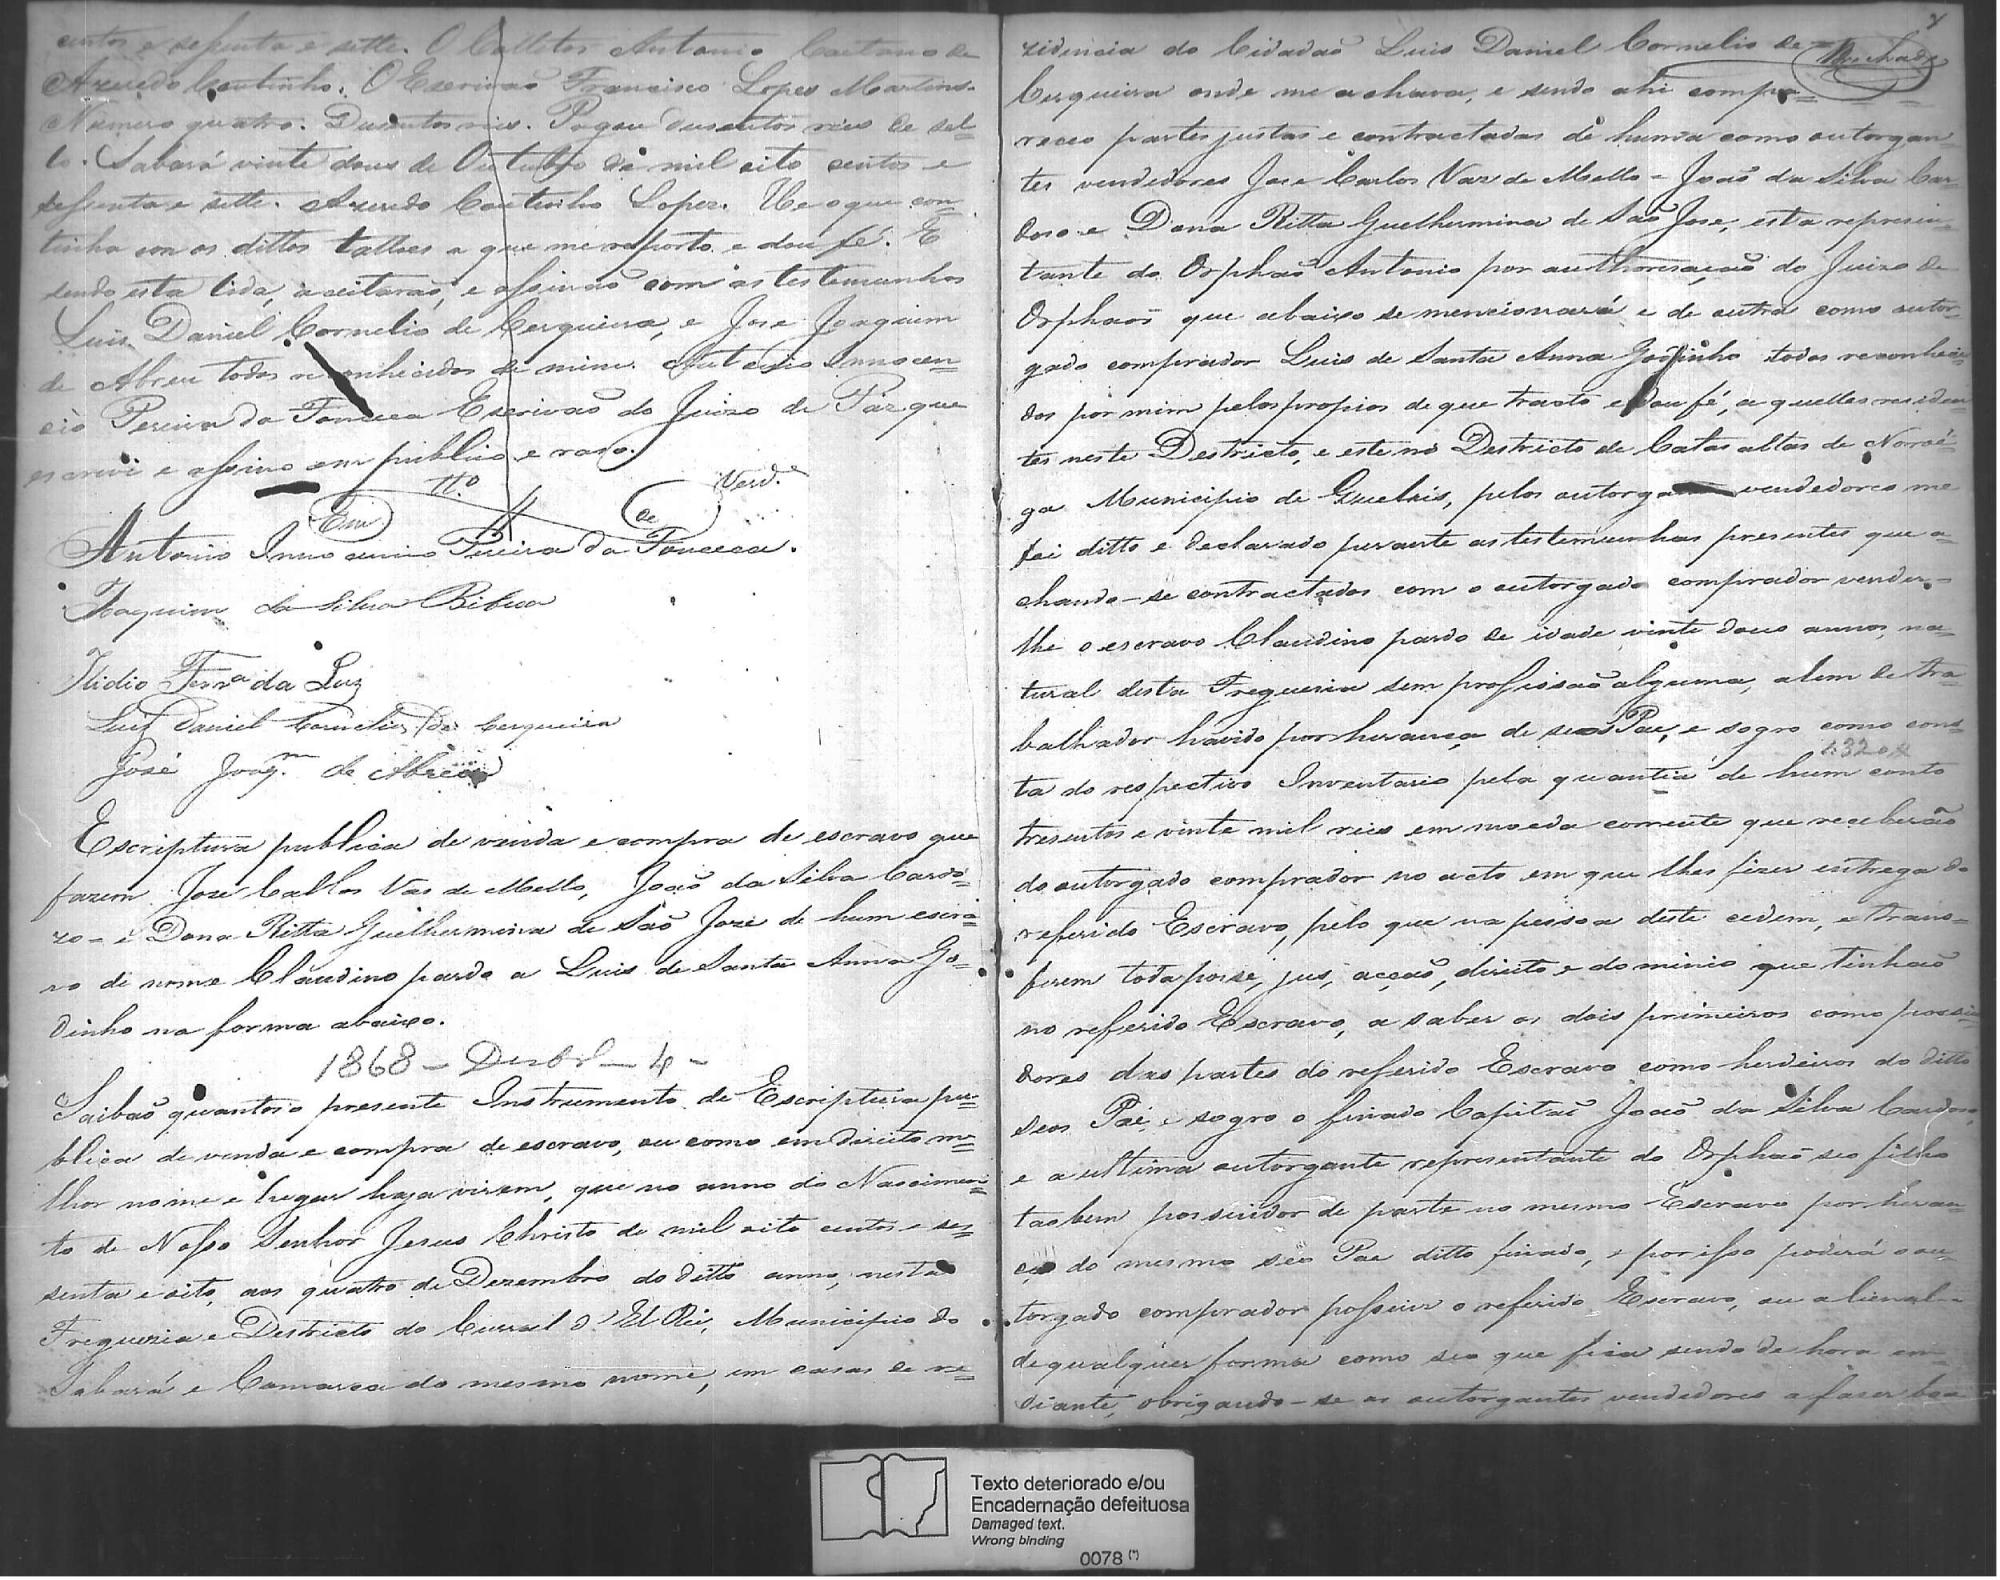 centos e sessenta e sette. O Colletor Antonio Caetano de
Azeredo Coutinho. O Escrivaõ Francisco Lopes Martins.
Número quatro. Dusentos reis. Pagou dusentos reis de sel=
lo. Sabará vinte dous de Outubro de mil oito sentos e
sessenta e sette. Azeredo Coutinho Lopes. He o que con=
tinha em os dittos talões a que me reporto e dou fé. E
sendo esta lida, aceitaraõ, e assinaõ com as testemunhas
Luis Daniel Cornelio de Cerqueira, e Jose Joaquim
de Abreu todos reconhecidos de mim. Antonio Innocen=
cio Pereira da Fonceca Escrivaõ do Juizo de Paz que
escrevi e assino em publico e raso.
Em tt.º de Verd.e
Antonio Innocencio Pereira da Fonceca.
Joaquim da Silva
Ilidio Ferrª da Luz
Luiz Daniel Cornelio de Cerqueira
José Joaq.m de Abreu
Escriptura publica de venda e compra de escravo que
fazem José Carlos Vas de Mello, Joaõ da Silva Cardo=
zo = e Dona Ritta Guilhermina de Saõ José de hum escra=
vo de nome Claudino pardo a Luis de Santa Anna Go=
dinho na forma abaixo.
1868 - Dezbr - 4 -
Saibaõ quantos o presente Instrumento de Escriptura pu=
blica de venda e compra de escravo, ou como em direito me=
lhor nome e lugar haja virem, que no anno do Nascimen=
to de Nosso Senhor Jesus Christo de mil oito centos e ses=
senta e oito, aos quatro de Dezembro do ditto anno, nesta
Freguezia e Destricto do Curral d'El Rei, Municipio do
Sabará e Comarca do mesmo nome, em casas de re=
zidencia do Cidadaõ Luis Daniel Cornelio de = Machado
Cerqueira onde me achava, e sendo ahi compa=
receo partes justas e contractadas de huma como outorgan=
tes vendedores Jose Carlos Vaz de Mello = Joaõ da Silva Car=
doso e Dona Ritta Guelhermina de Saõ Jose, esta represen=
tante do Orphaõ Antonio por authorisaçaõ do Juizo de
Orphaõs que abaixo se mencionará e de outra como outor=
gado comprador Luis de Santa Anna Godinho todos reconheci=
dos por mim pelos propios de que tracto e dou fé, a quelles residen=
tes neste Destricto, e este no Destricto de Catas altas de Noroé=
ga Municipio de Quelús, pelos outorga vendedores me
foi ditto e declarado perante as testemunhas presentes que a=
chando-se contractados com o outorgado comprador vender=
lhe o escravo Claudino pardo de idade vinte dous annos, na=
tural desta Freguezia sem profissaõ alguma, alem de tra=
balhador havido por herança de seos Pae, e sogro como cons=
1:320$
ta do respectivo Inventario pela quantia de hum conto
tresentos e vinte mil reis em moeda corrente que receberaõ
do outorgado comprador no acto em que lhes fizer entrega do
referido Escravo, pelo que na pessoa deste cedem, e trans=
ferem toda posse, jus, acçaõ, direito e dominio que tinhaõ
no referido Escravo, a saber os dois primeiros como possui=
dores das partes do referido Escravo como herdeiros do ditto
seos Pai, e sogro o finado Capitaõ Joaõ da Silva Cardoso,
e a ultima outorgante representante do Orphaõ seo filho
taobem possuidor de parte no mesmo Escravo por heran=
ça do mesmo seo Pae ditto finado, e por isso poderá o ou=
torgado comprador possuir o referido Escravo, ou alienal-o
de qualquer forma como seo que fica sendo de hora em=
diante, obrigando-se os outorgantes vendedores a fazer boa
Texto deteriorado e/ou
Encadernação defeituosa
Damaged text.
Wrong binding
0078 (*)